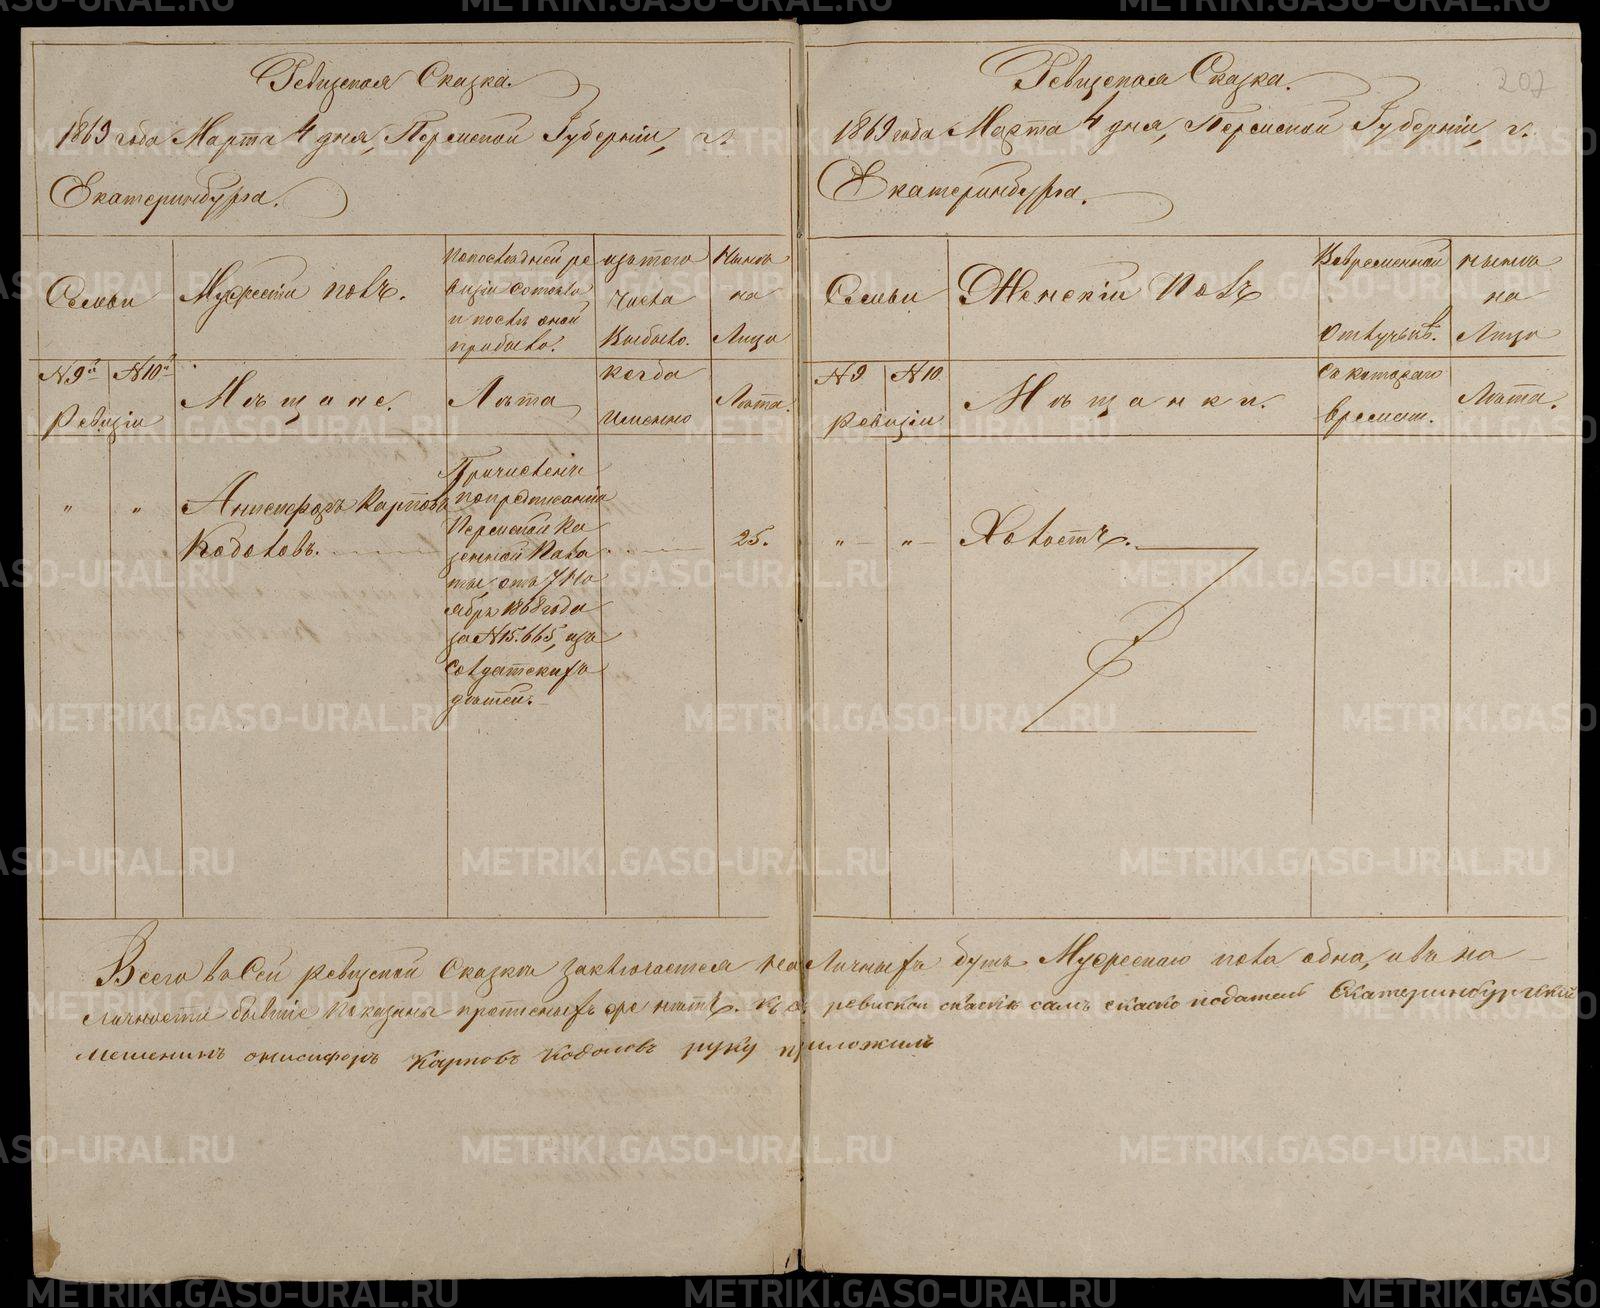 Ревизская Сказка.
1869 года Марта 4 дня, Пермской Губернии, г.
Екатеринбурга.
Семьи
Мужеский полъ.
По последней ре
визіи состояло
и послѣ оной
прибыло.
изъ того
числа
выбыло.
Нынѣ
на
Лицо
№ 9й
№ 10й
Ревизіи
Мѣщане.
Лѣта
когда
именно
Лѣта.
" "
Анисифоръ Карповъ
Кобяковъ.
Причисленъ
по предписанію
Пермской Ка
зенной Пала
ты, отъ 7 Но
ября 1868 года
за № 15.665, изъ
Солдатскихъ
дѣтей.
25.
207
Ревизская Сказка.
1869 года Марта 4 дня, Пермской Губерніи, г.
Екатеринбурга.
Семьи
Женскій Полъ
Во временной
отлучкѣ.
нынѣ
на
Лицо
№ 9
№ 10
Ревизіи
Мѣщанки.
Съ котораго
времени.
Лѣта.
" — " —
Холостъ.
Всего въ Сей ревизской Сказкѣ заключается на Личныхъ душъ Мужескаго пола одна, и въ на
личности бывшіе показаны прописныхъ же нѣтъ. Къ сей ревиской скаскѣ самъ скаско податель Екатеринбургской
мещенинъ онисифоръ Карповъ руку приложилъ
METRIKI.GASO-URAL.RU